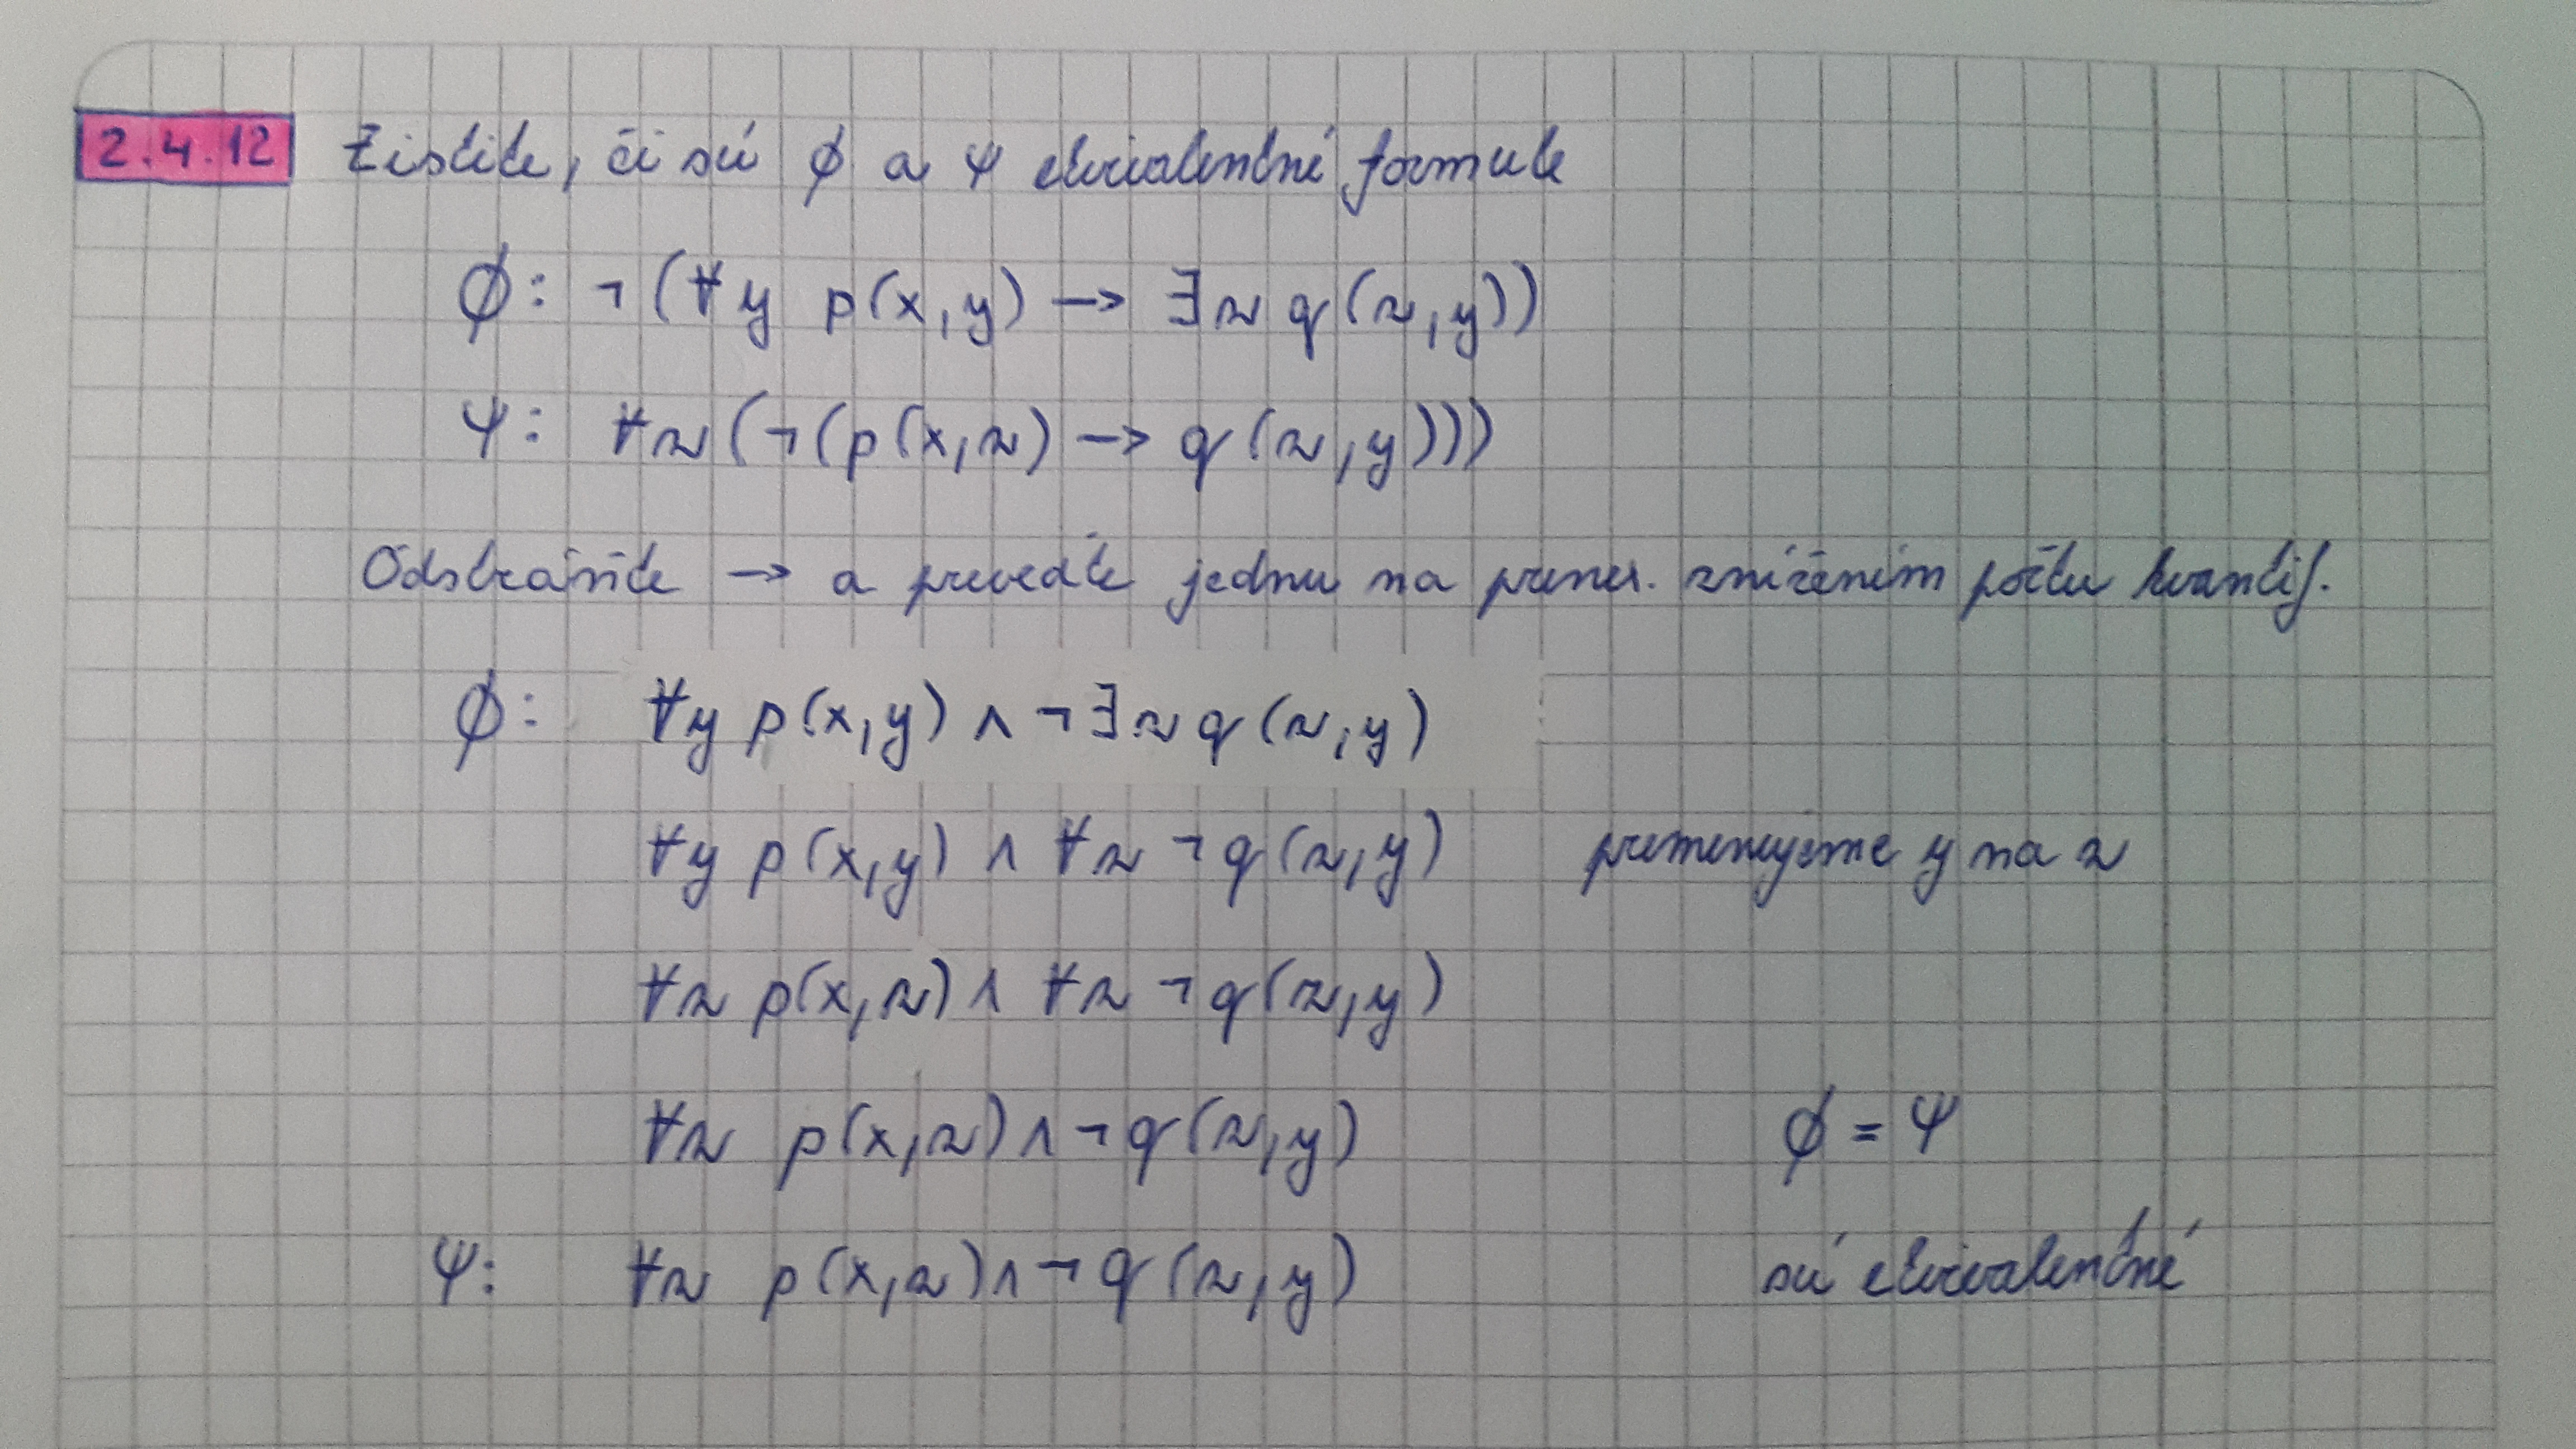 2.4.12 Zistite, či sú ϕ a ψ ekvivalentné formule
ϕ: ¬(∀y p(x,y) → ∃z q(z,y))
ψ: ∀z(¬(p(x,z) → q(z,y)))
Odstráňte → a preveďte jednu na prenex. znížením počtu kvantif.
ϕ: ∀y p(x,y) ∧ ¬∃z q(z,y)
∀y p(x,y) ∧ ∀z ¬q(z,y) premenujeme y na z
∀z p(x,z) ∧ ∀z ¬q(z,y)
∀z p(x,z) ∧ ¬q(z,y) ϕ = ψ
ψ: ∀z p(x,z) ∧ ¬q(z,y) sú ekvivalentné